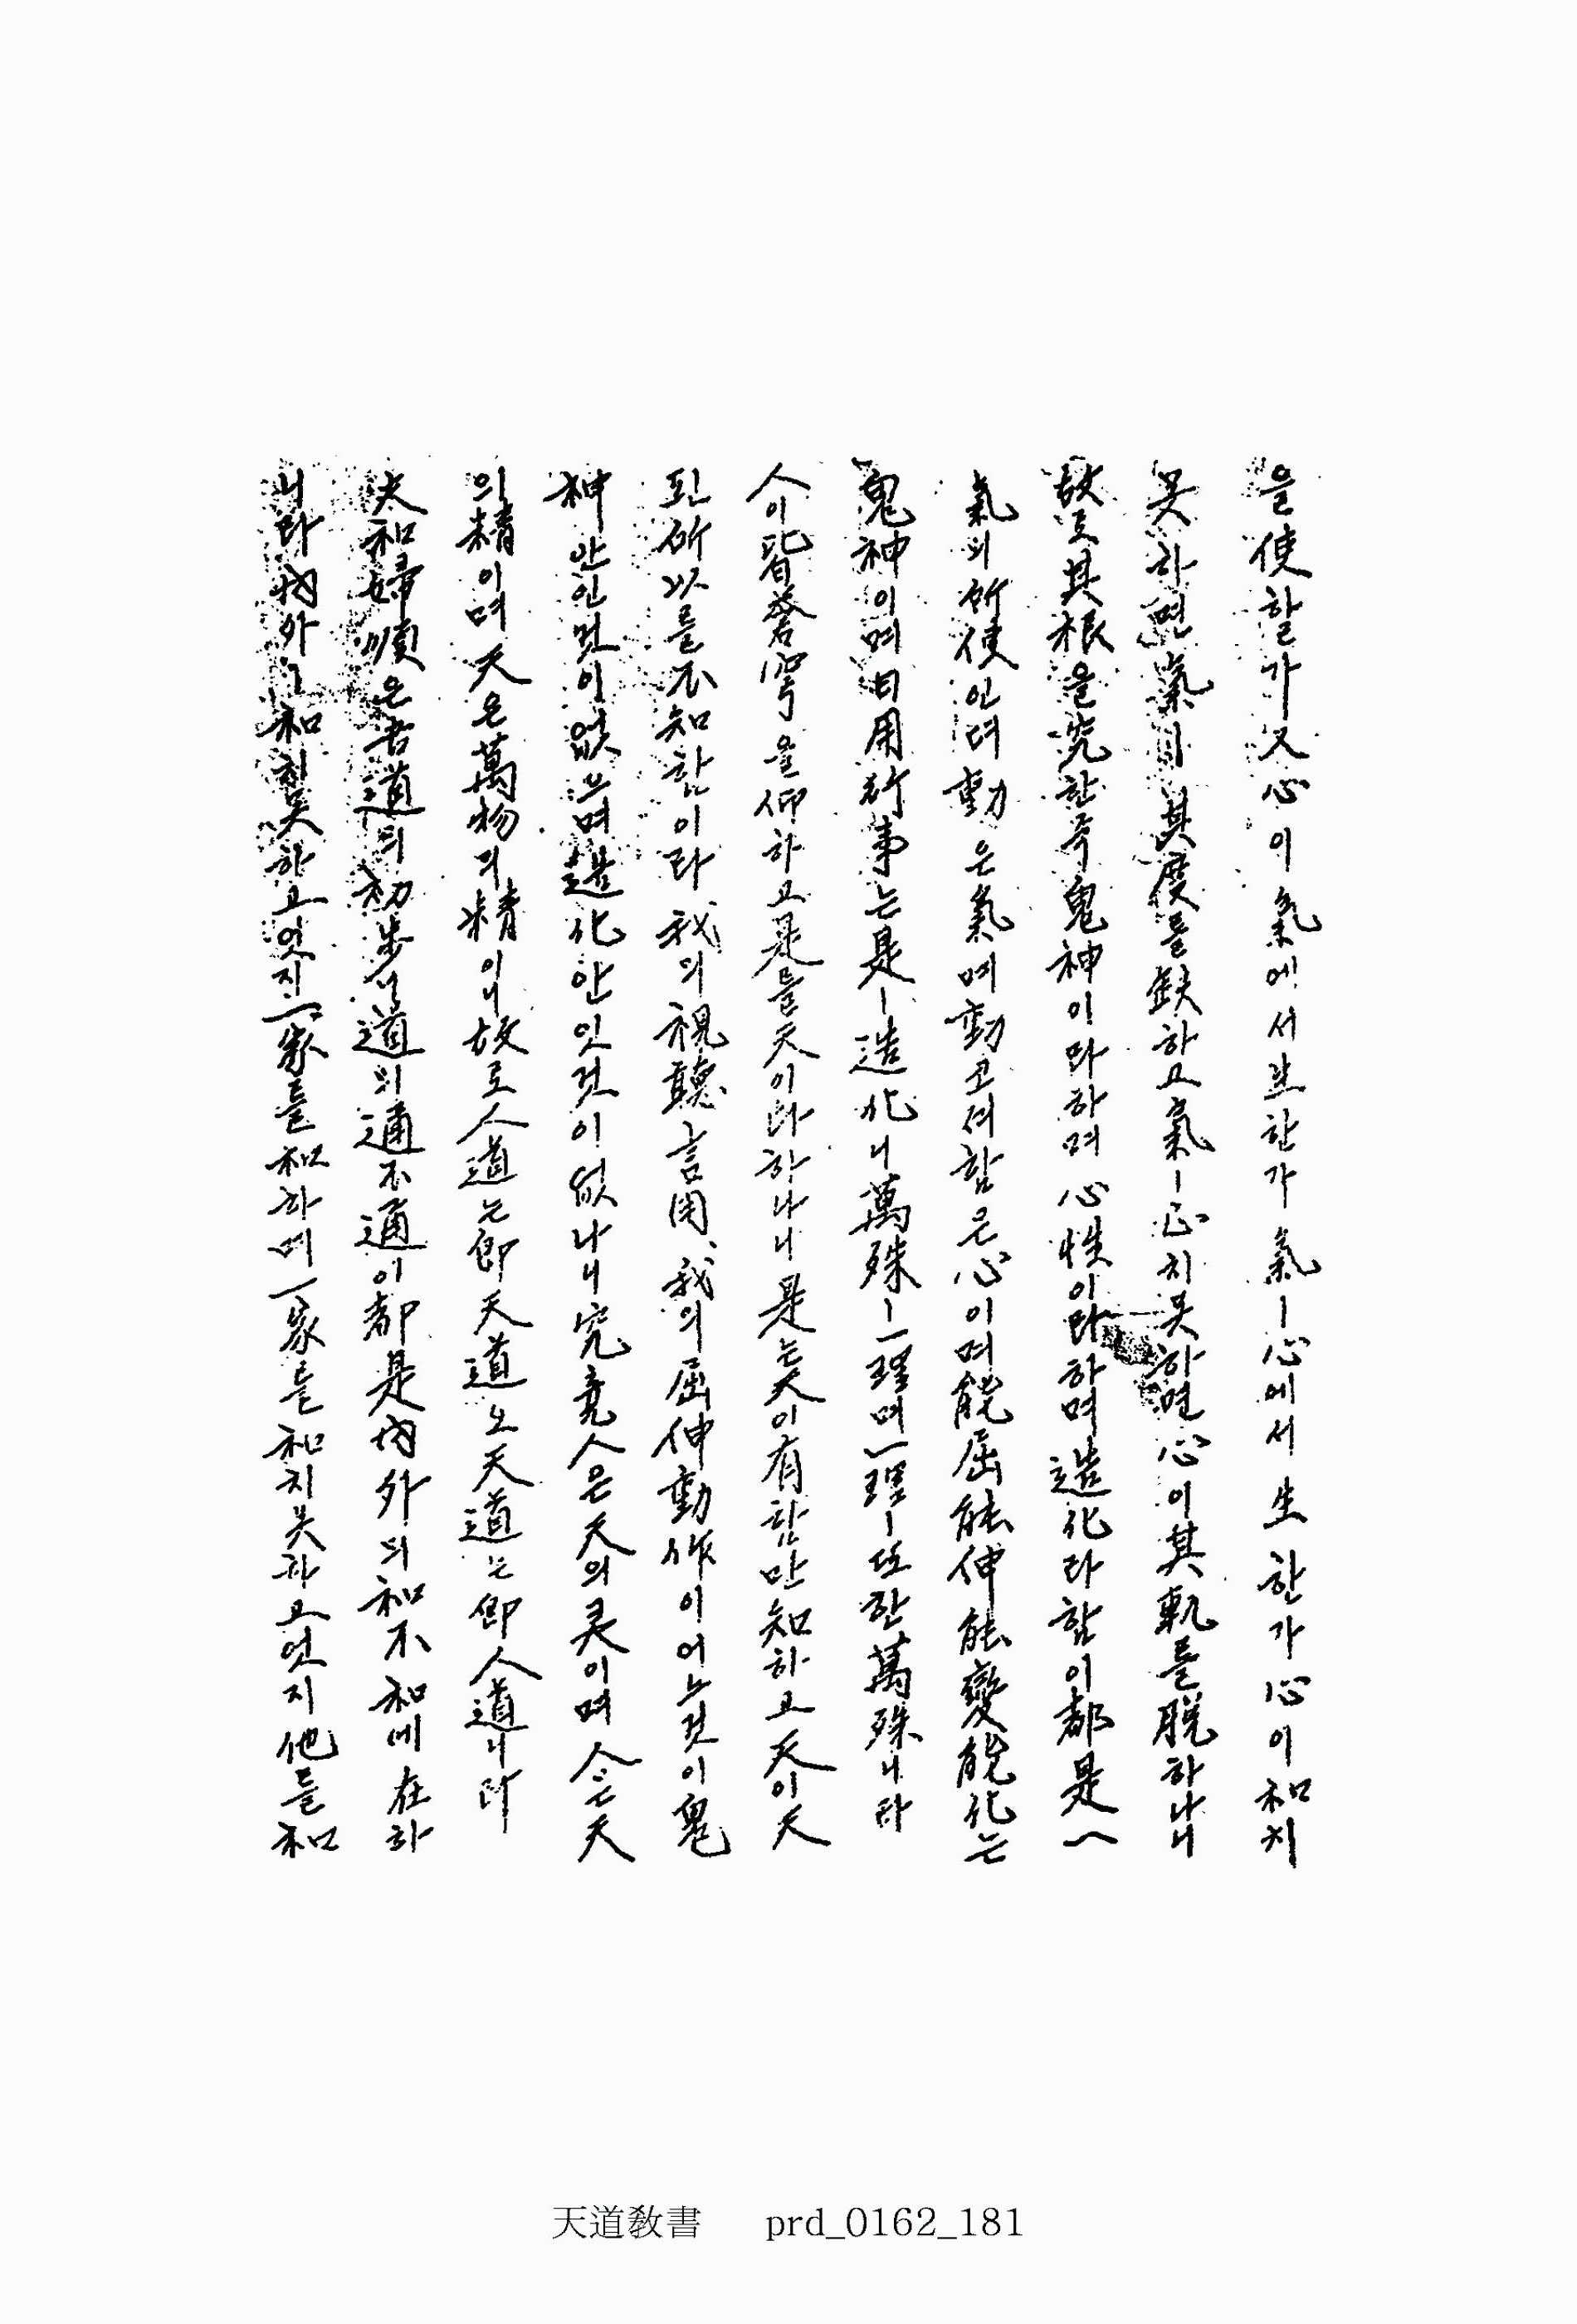 을使할가又心이氣에서生한가氣ㅣ心에서生한가心이和치
못하면氣ㅣ其度를缺하고氣ㅣ正치못하면心이其軌를脫하나니
故로其根을究한즉鬼神이라하며心性이라하며造化라함이都是一
氣의所使인뎌動은氣며動코져함은心이며能屈能伸能變能化는
鬼神이며日用行事는是ㅣ造化니萬殊ㅣ一理며一理ㅣ또한萬殊니라
人이皆蒼穹을仰하고是를天이라하나니是는天이有함만知하고天이天
된所以를不知함이라我의視聽言用、我의屈伸動作이어느것이鬼
神안인것이없으며造化안인것이없나니究竟人은天의灵이며人은天
의精이며天은萬物의精이니故로人道는卽天道오天道는卽人道니라
夫和婦順은吾道의初步니道의通不通이都是內外의和不和에在하
니라內外ㅣ和치못하고엇지一家를和하며一家를和치못하고엇지他를和
天道敎書 prd_0162_181